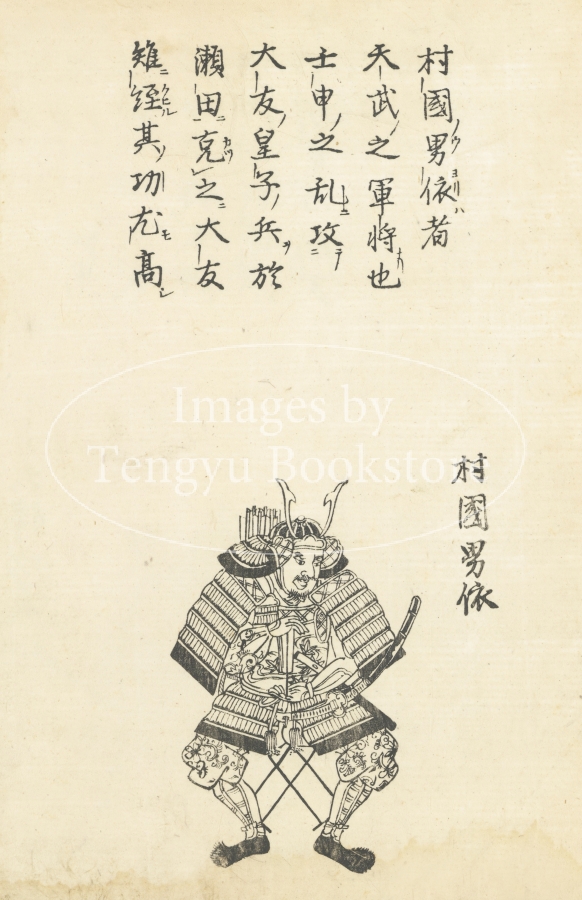 村國男依者
天武之軍将也
壬申之乱攻
大友皇子兵於
瀬田克之大友
雉経其功尤髙
村國男依
Images by
Tengyu Bookstore